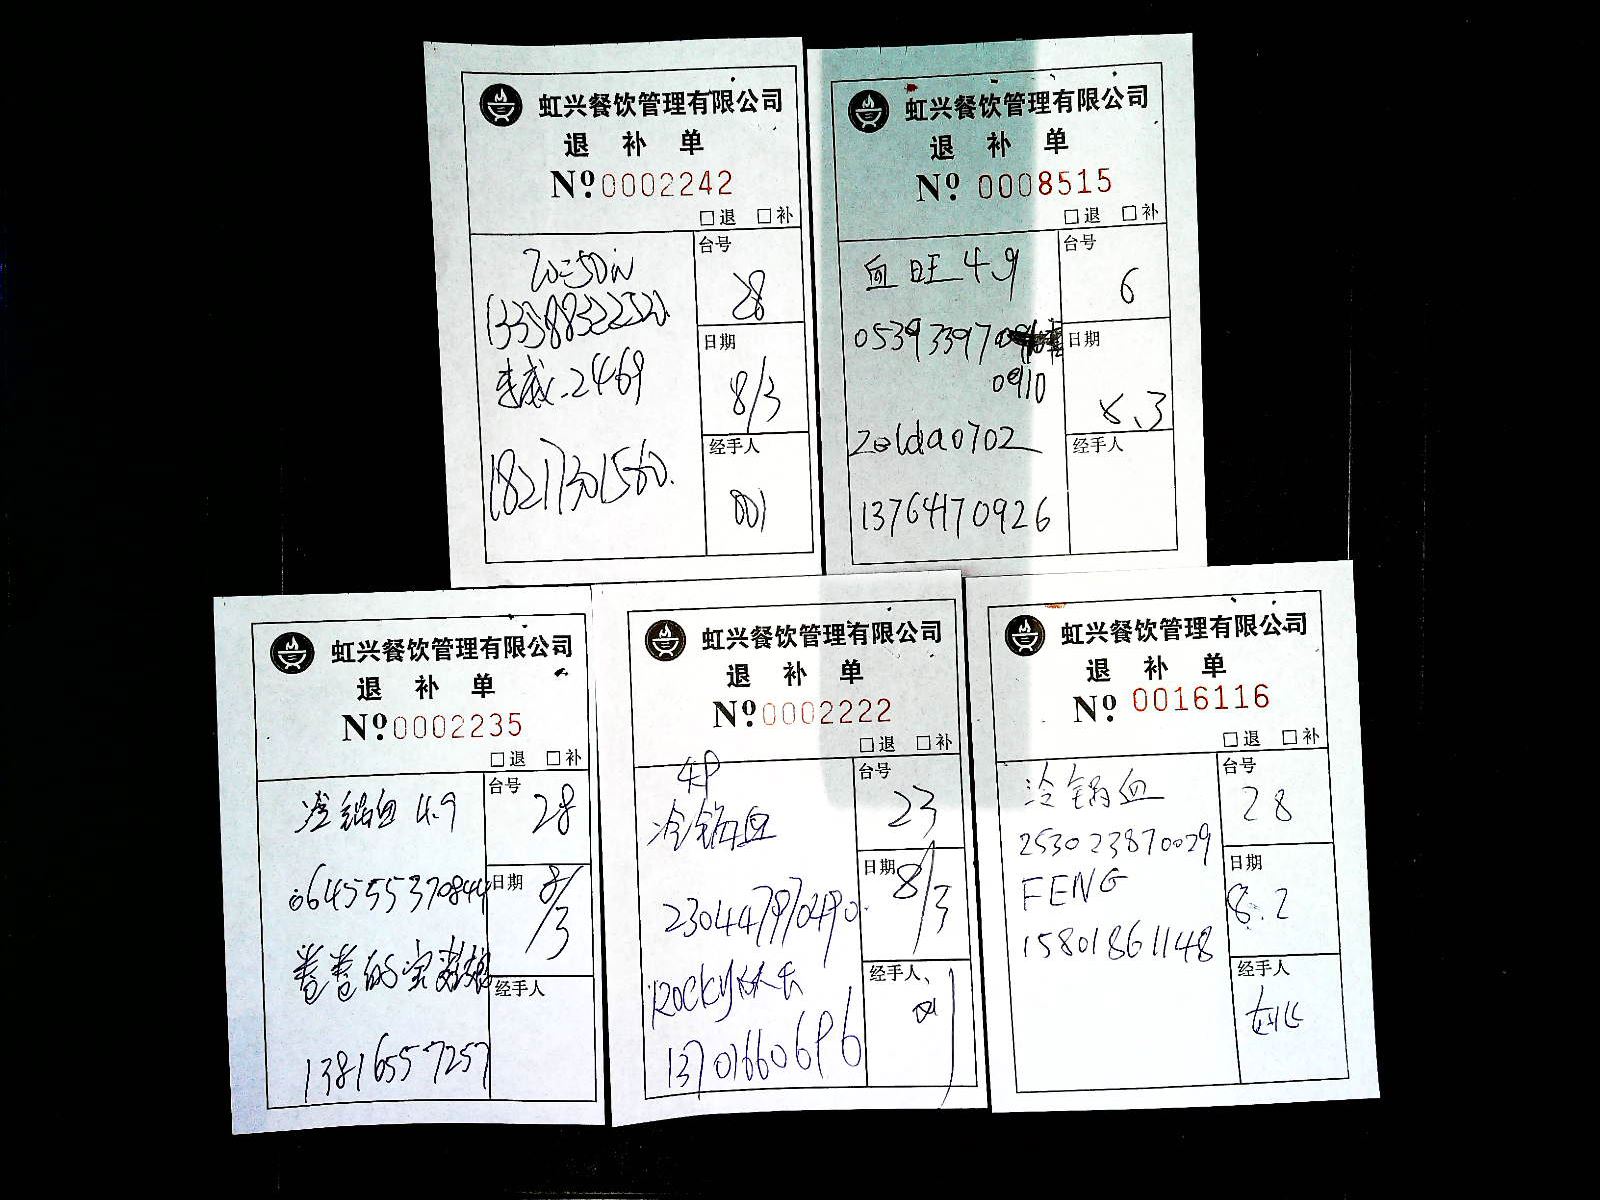 虹兴餐饮管理有限公司
退 补 单
Nº:0002242
□退 □补
台号
28
日期
8/3
18217301560.
经手人
001
虹兴餐饮管理有限公司
退 补 单
Nº: 0008515
□退 □补
血旺 4.9
台号
6
05393397
0910
日期
8.3
zelda0702
13764170926
经手人
虹兴餐饮管理有限公司
退 补 单
Nº:0002235
□退 □补
冷锅血 4.9
台号
28
064555370844
日期
8/3
卷卷的宝
13816557257
经手人
虹兴餐饮管理有限公司
退 补 单
Nº:0002222
□退 □补
冷锅血
台号
23
230447970490
日期
8/3
ROCKY
13701660696
经手人
虹兴餐饮管理有限公司
退 补 单
Nº: 0016116
□退 □补
冷锅血
台号
28
253023870029
FENG
15801861148
日期
8.2
经手人